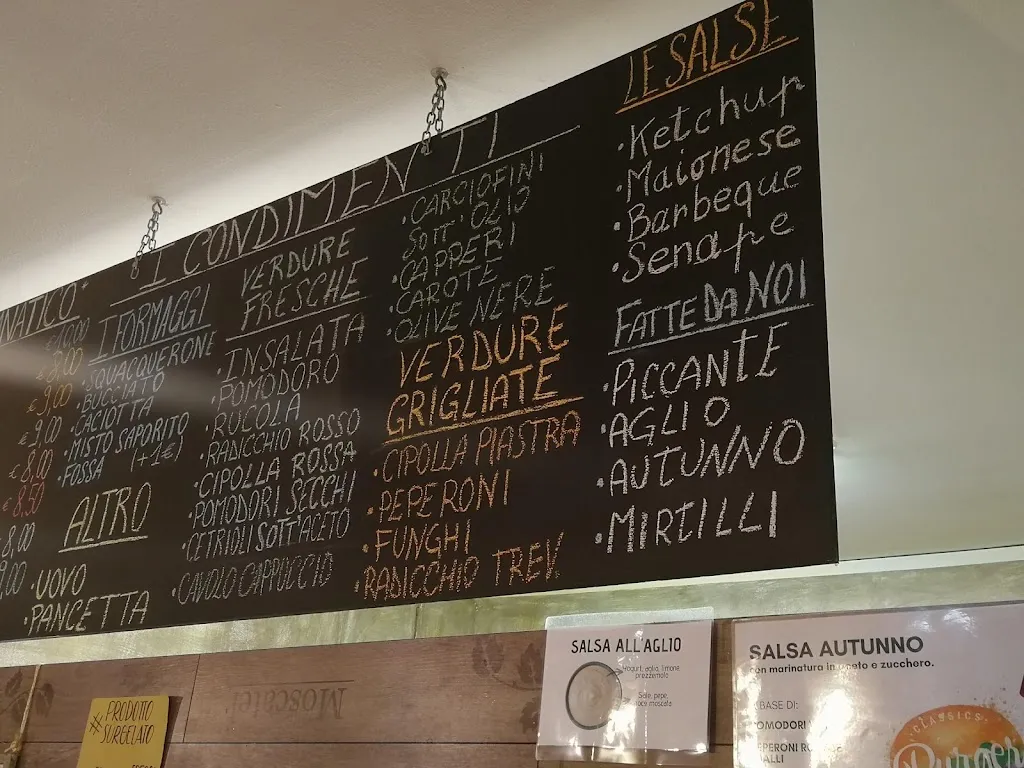 I CONDIMENTI
€ 8,00
€ 9,00
€ 9,00
€ 8,00
€ 8,50
8,00
9,00
I FORMAGGI
• SQUACQUERONE
• BUCCIATO
• CACIOTTA
• MISTO SAPORITO
FOSSA (+1€)
ALTRO
• UOVO
• PANCETTA
VERDURE
FRESCHE
• INSALATA
• POMODORO
• RUCOLA
• RADICCHIO ROSSO
• CIPOLLA ROSSA
• POMODORI SECCHI
• CETRIOLI SOTT'ACETO
• CAVOLO CAPPUCCIO
• CARCIOFINI
SOTT'OLIO
• CAPPERI
• CAROTE
• OLIVE NERE
VERDURE
GRIGLIATE
• CIPOLLA PIASTRA
• PEPERONI
• FUNGHI
• RADICCHIO TREV.
LE SALSE
• Ketchup
• Maionese
• Barbeque
• Senape
FATTE DA NOI
• PICCANTE
• AGLIO
• AUTUNNO
• MIRTILLI
Moscatel
# PRODOTTO
SURGELATO
SALSA ALL'AGLIO
Yogurt, aglio, limone,
prezzemolo
Sale, pepe,
noce moscata
SALSA AUTUNNO
con marinatura in aceto e zucchero.
A BASE DI:
POMODORI
PEPERONI
GIALLI
CLASSICS
Burger